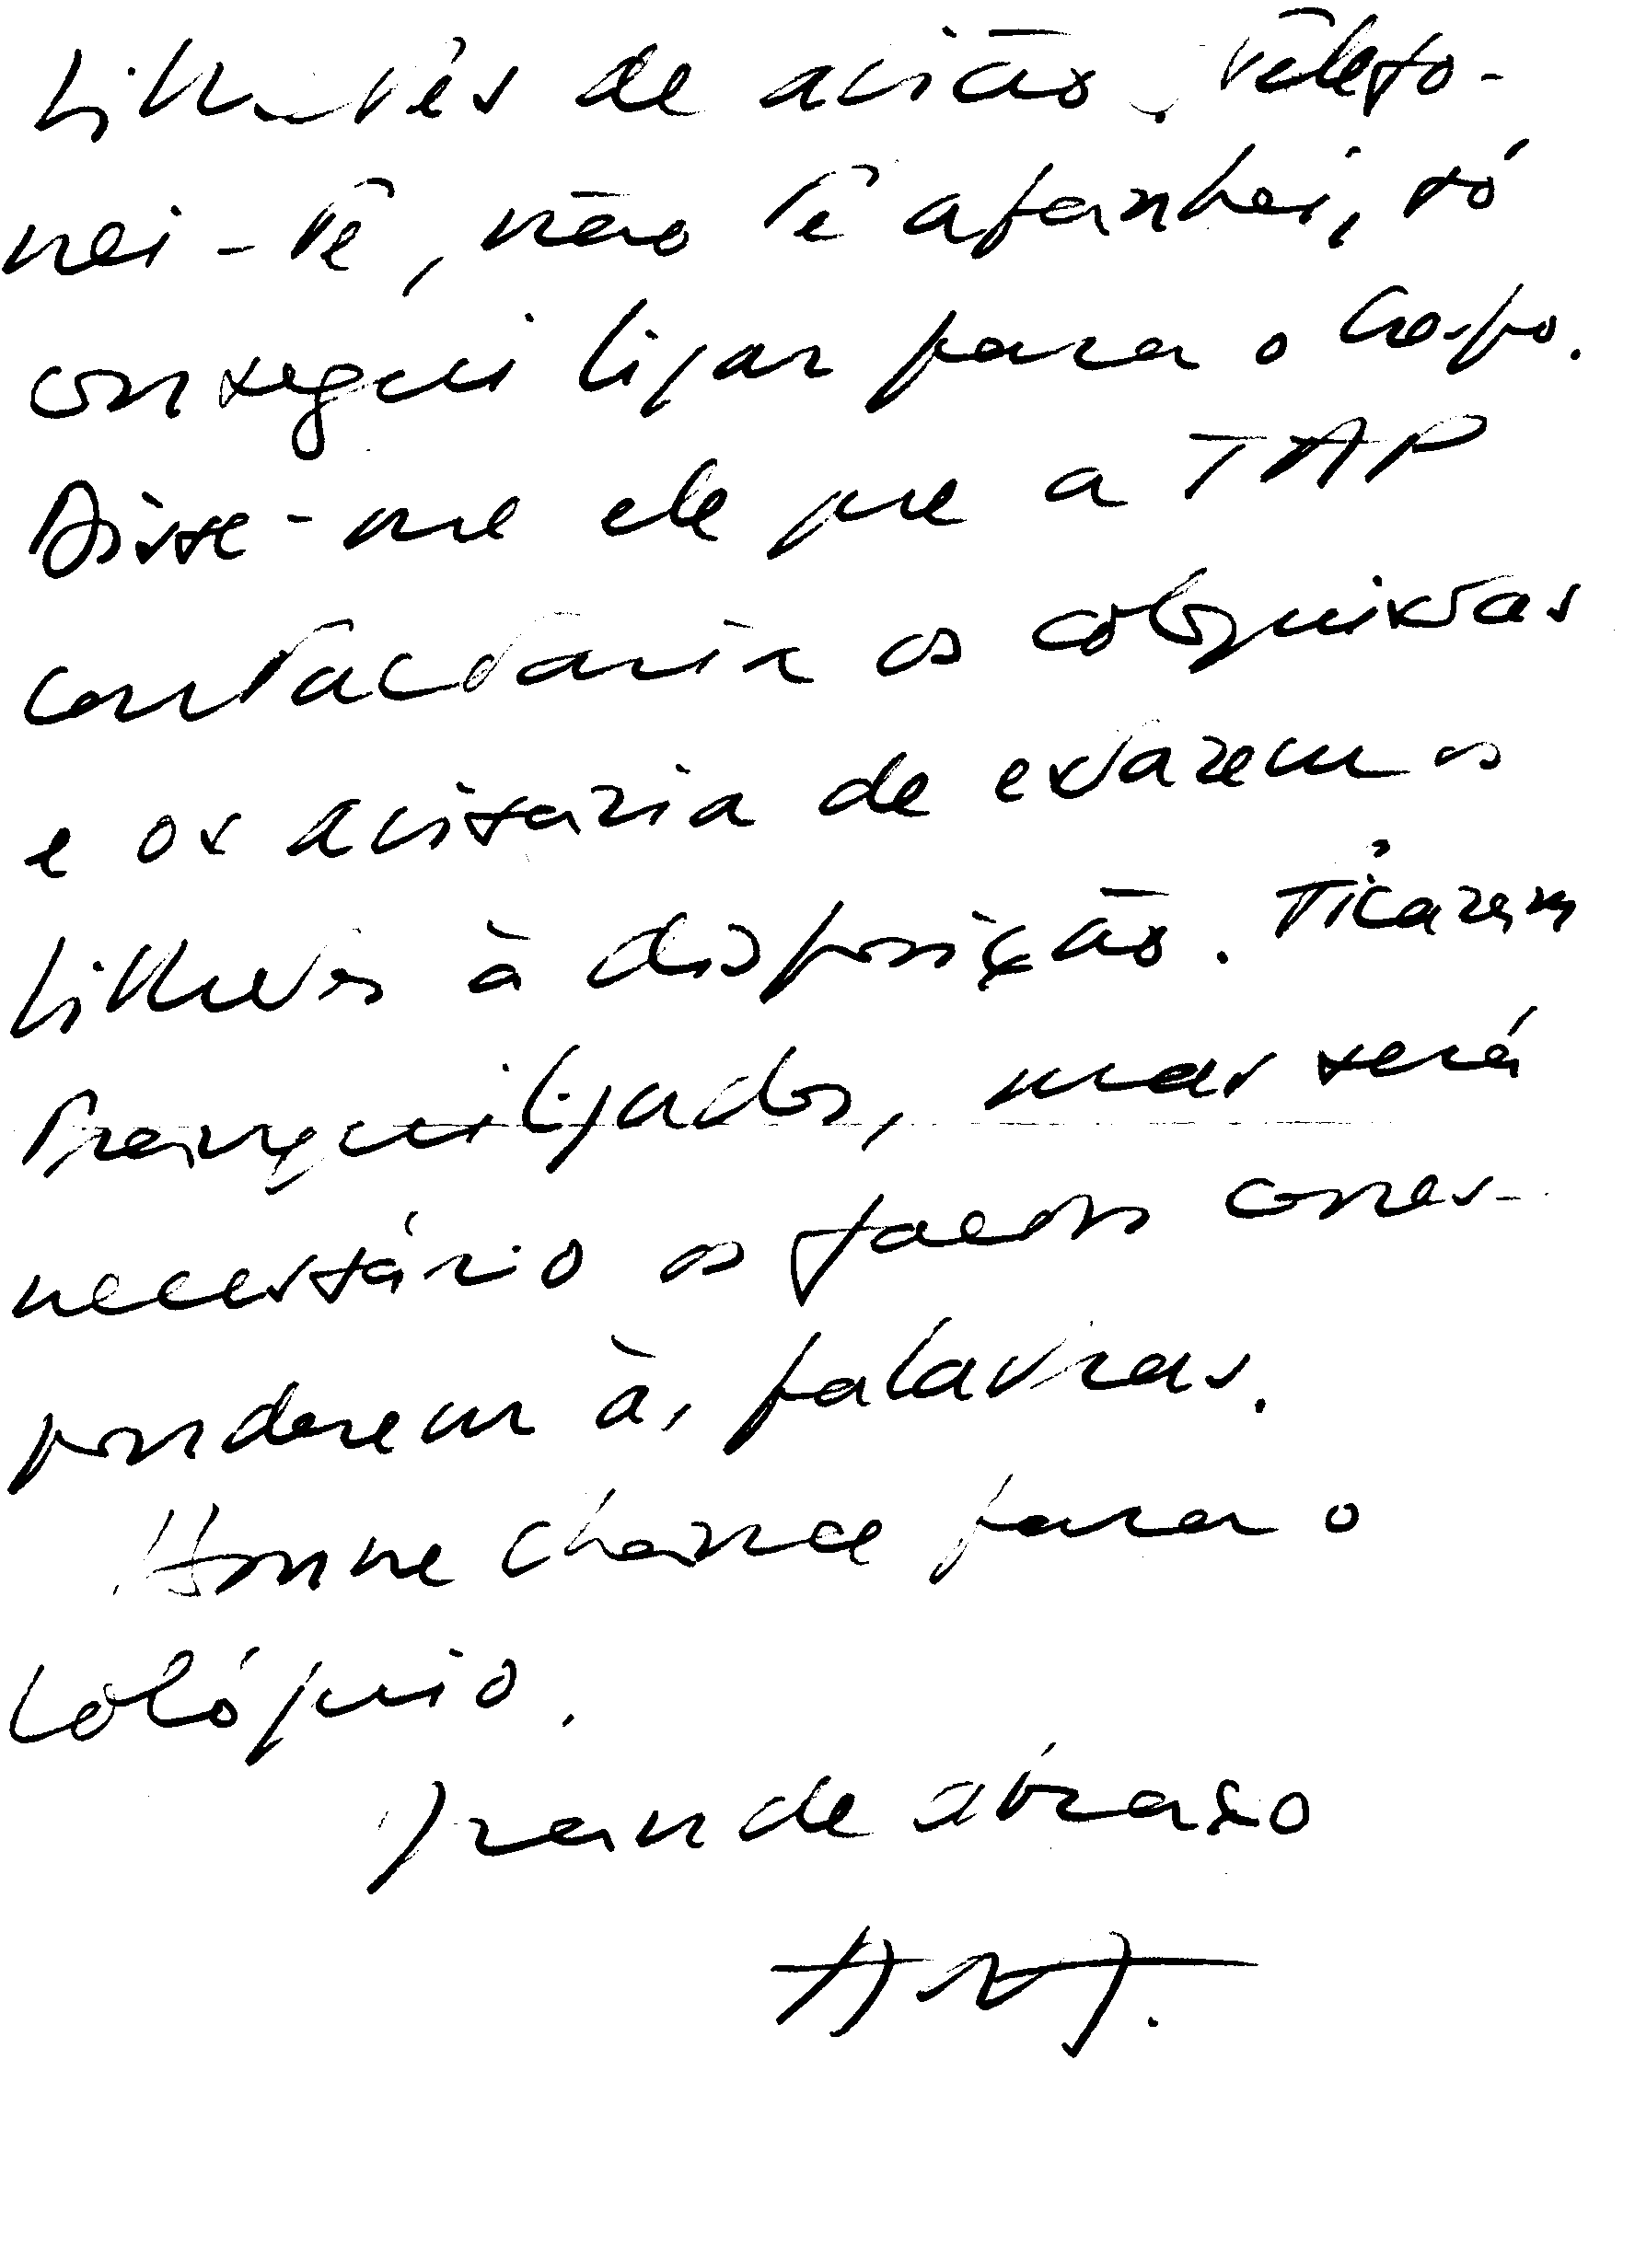 bilhetes de avião, telefo-
nei-te, não te apanhei, só
consegui ligar para o Crespo.
Disse-me ele que a TAP
contactaria os coloquistas
e os avisaria de estarem os
bilhetes à disposição. Ficaram
tranquilizados, mas será
necessário os factos corres-
ponderem às palavras.
Honne chance para o
Colóquio.
grande abraço